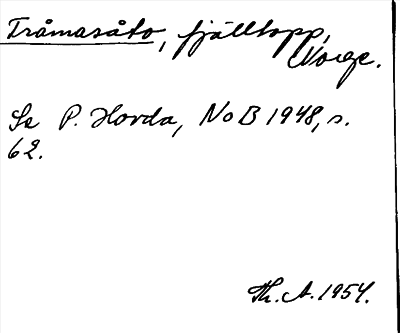 Tråmasåto, fjälltopp,
Norge.
Se P. Hovda, NoB 1948, s.
62.
Th. A. 1954.